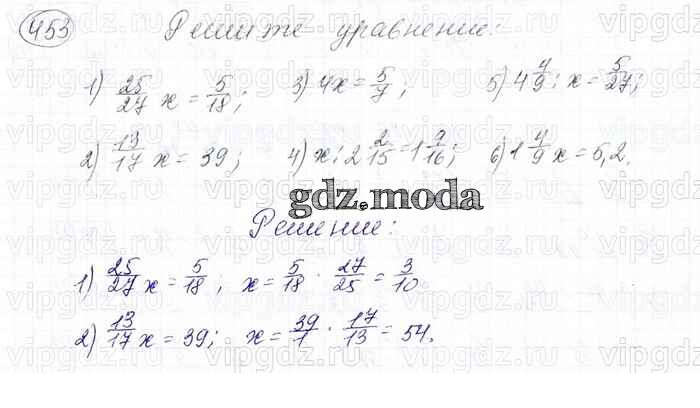 453 Решите уравнение:
1) 25/27 x = 5/18; 3) 4x = 5/7; 5) 4 4/9 : x = 5/27;
2) 13/17 x = 39; 4) x : 2 2/15 = 1 9/16; 6) 1 4/9 x = 5,2.
gdz.moda
Решение:
1) 25/27 x = 5/18; x = 5/18 · 27/25 = 3/10.
2) 13/17 x = 39; x = 39/1 · 17/13 = 54.